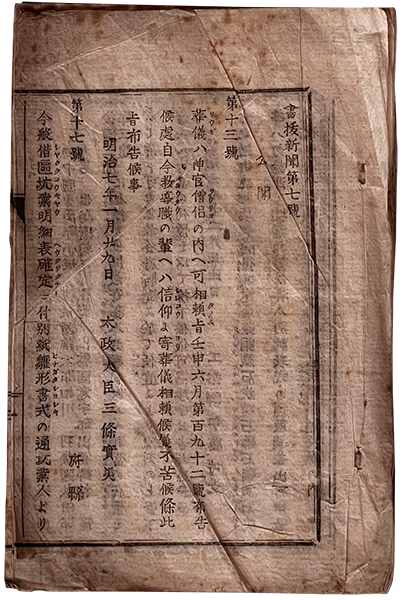 書拔新聞第七號
公聞
第十三號
葬儀ハ神官僧侶の内ヘ可相頼旨壬申六月第百九十二號布告
候處自今教導職の輩ヘハ信仰に寄葬儀相頼候儀不苦候條此
旨布告候事
明治七年一月廿九日 太政大臣三條實美
第十七號 府縣
今般借區坑業明細表確定ニ付別紙雛形書式の通坑業人より